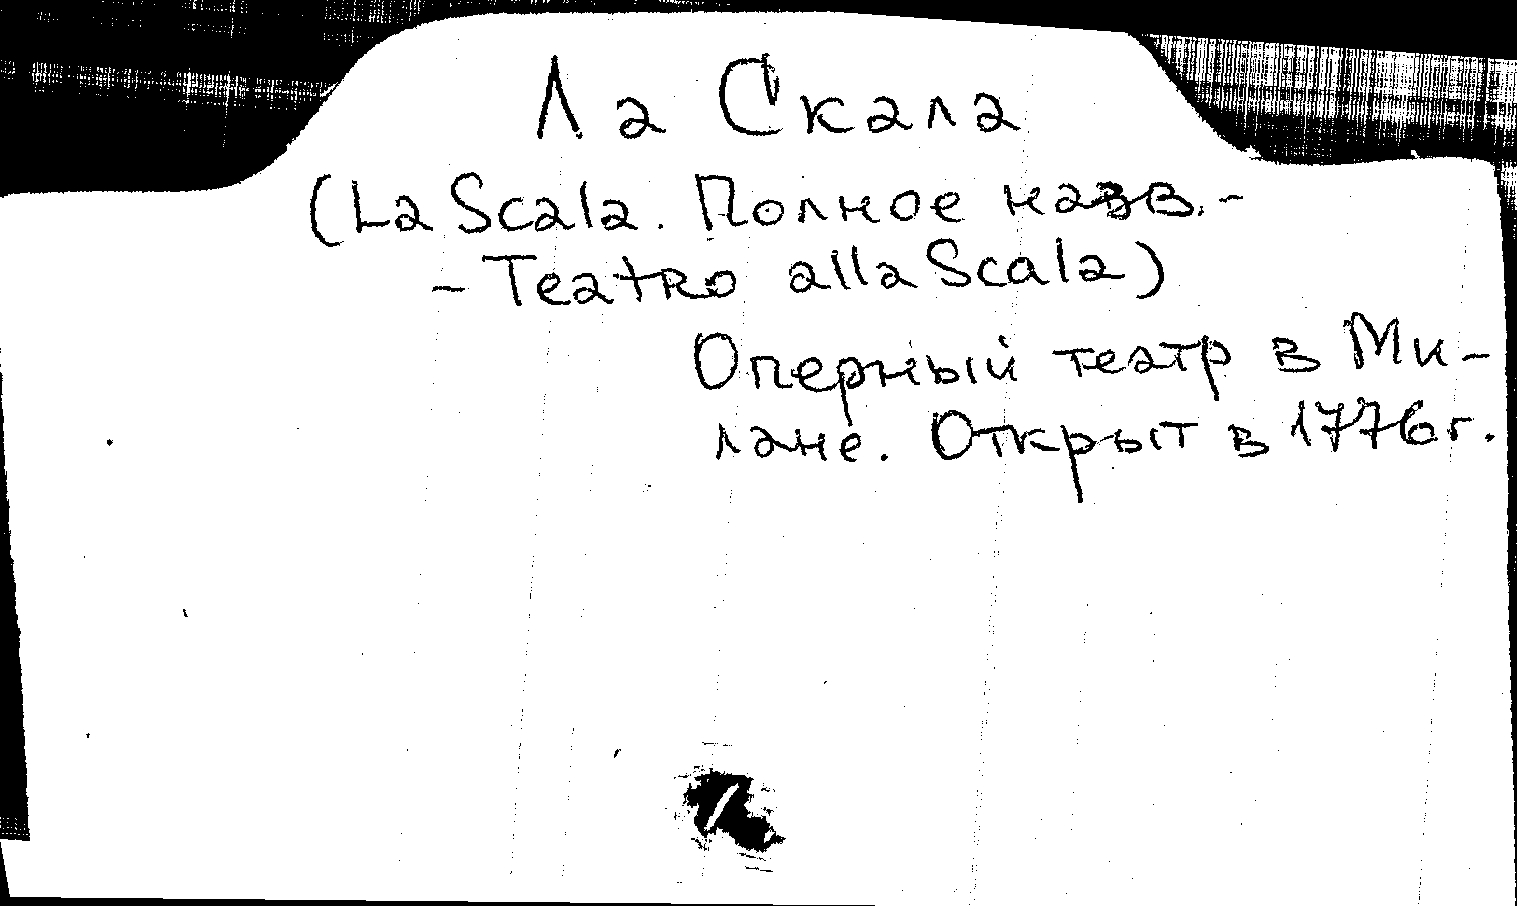 Ла Скала
(La Scala. Полное назв. -
- Teatro alla Scala)
Оперный театр в Ми-
лане. Открыт в 1776 г.